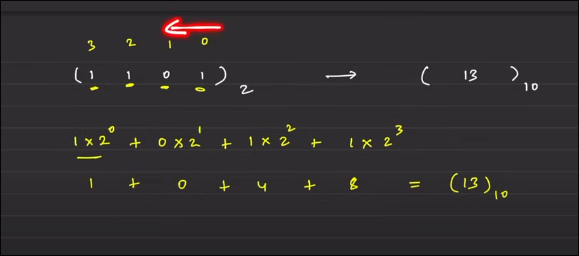 3 2 1 0
(1 1 0 1)₂ → (13)₁₀
1×2⁰ + 0×2¹ + 1×2² + 1×2³
1 + 0 + 4 + 8 = (13)₁₀